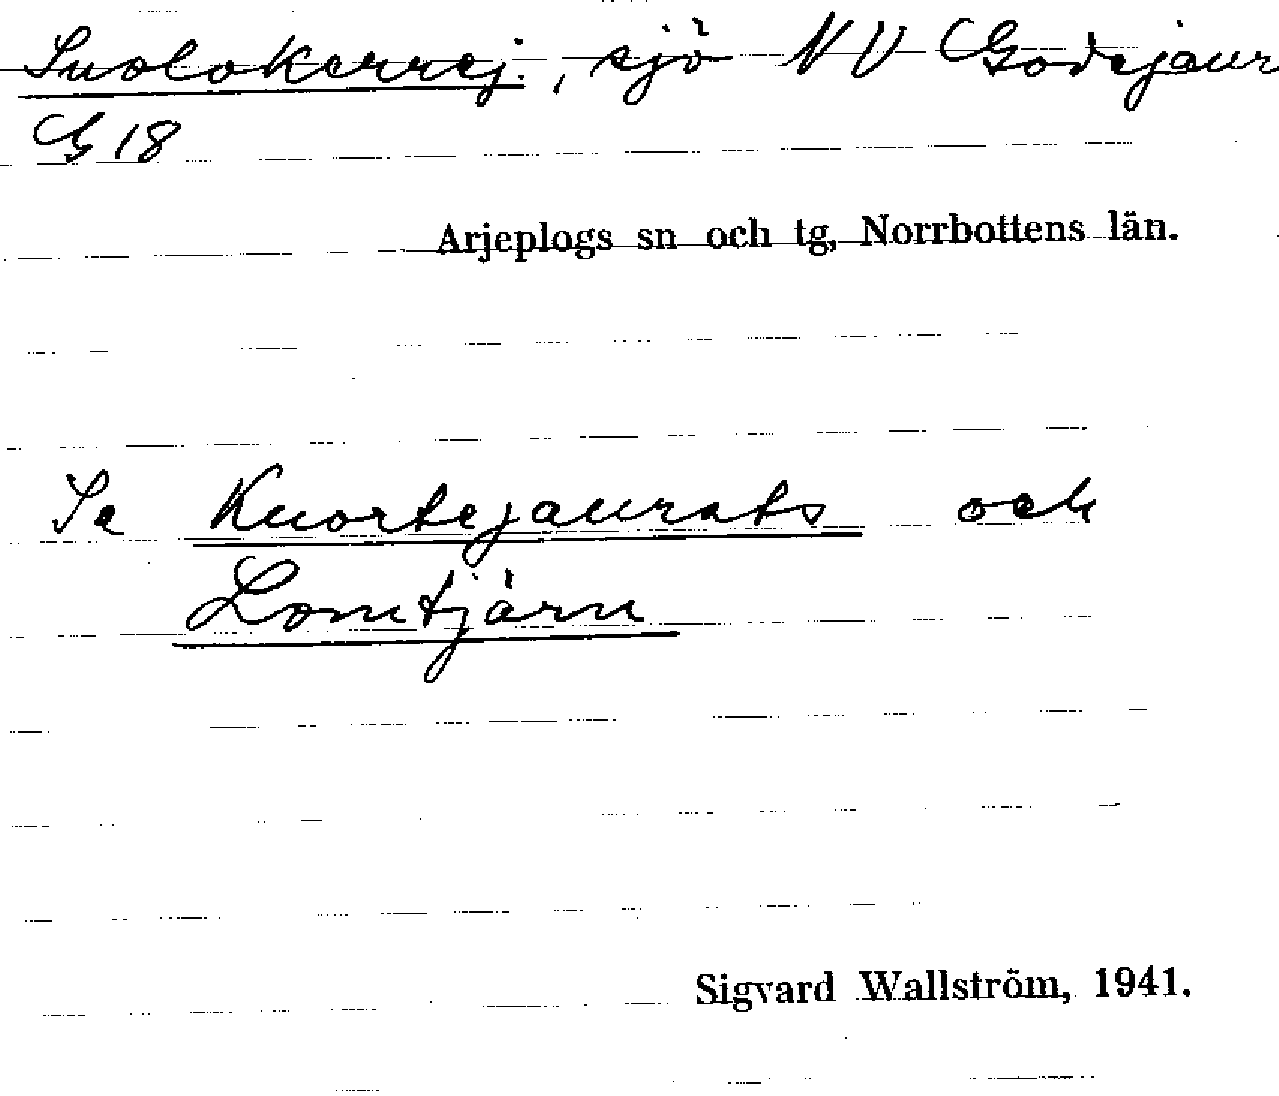 Suolokerrej., sjö NV Godejaur
G 18
Arjeplogs sn och tg, Norrbottens län.
Se Kuortejaurats och
Lomtjärn
Sigvard Wallström, 1941.